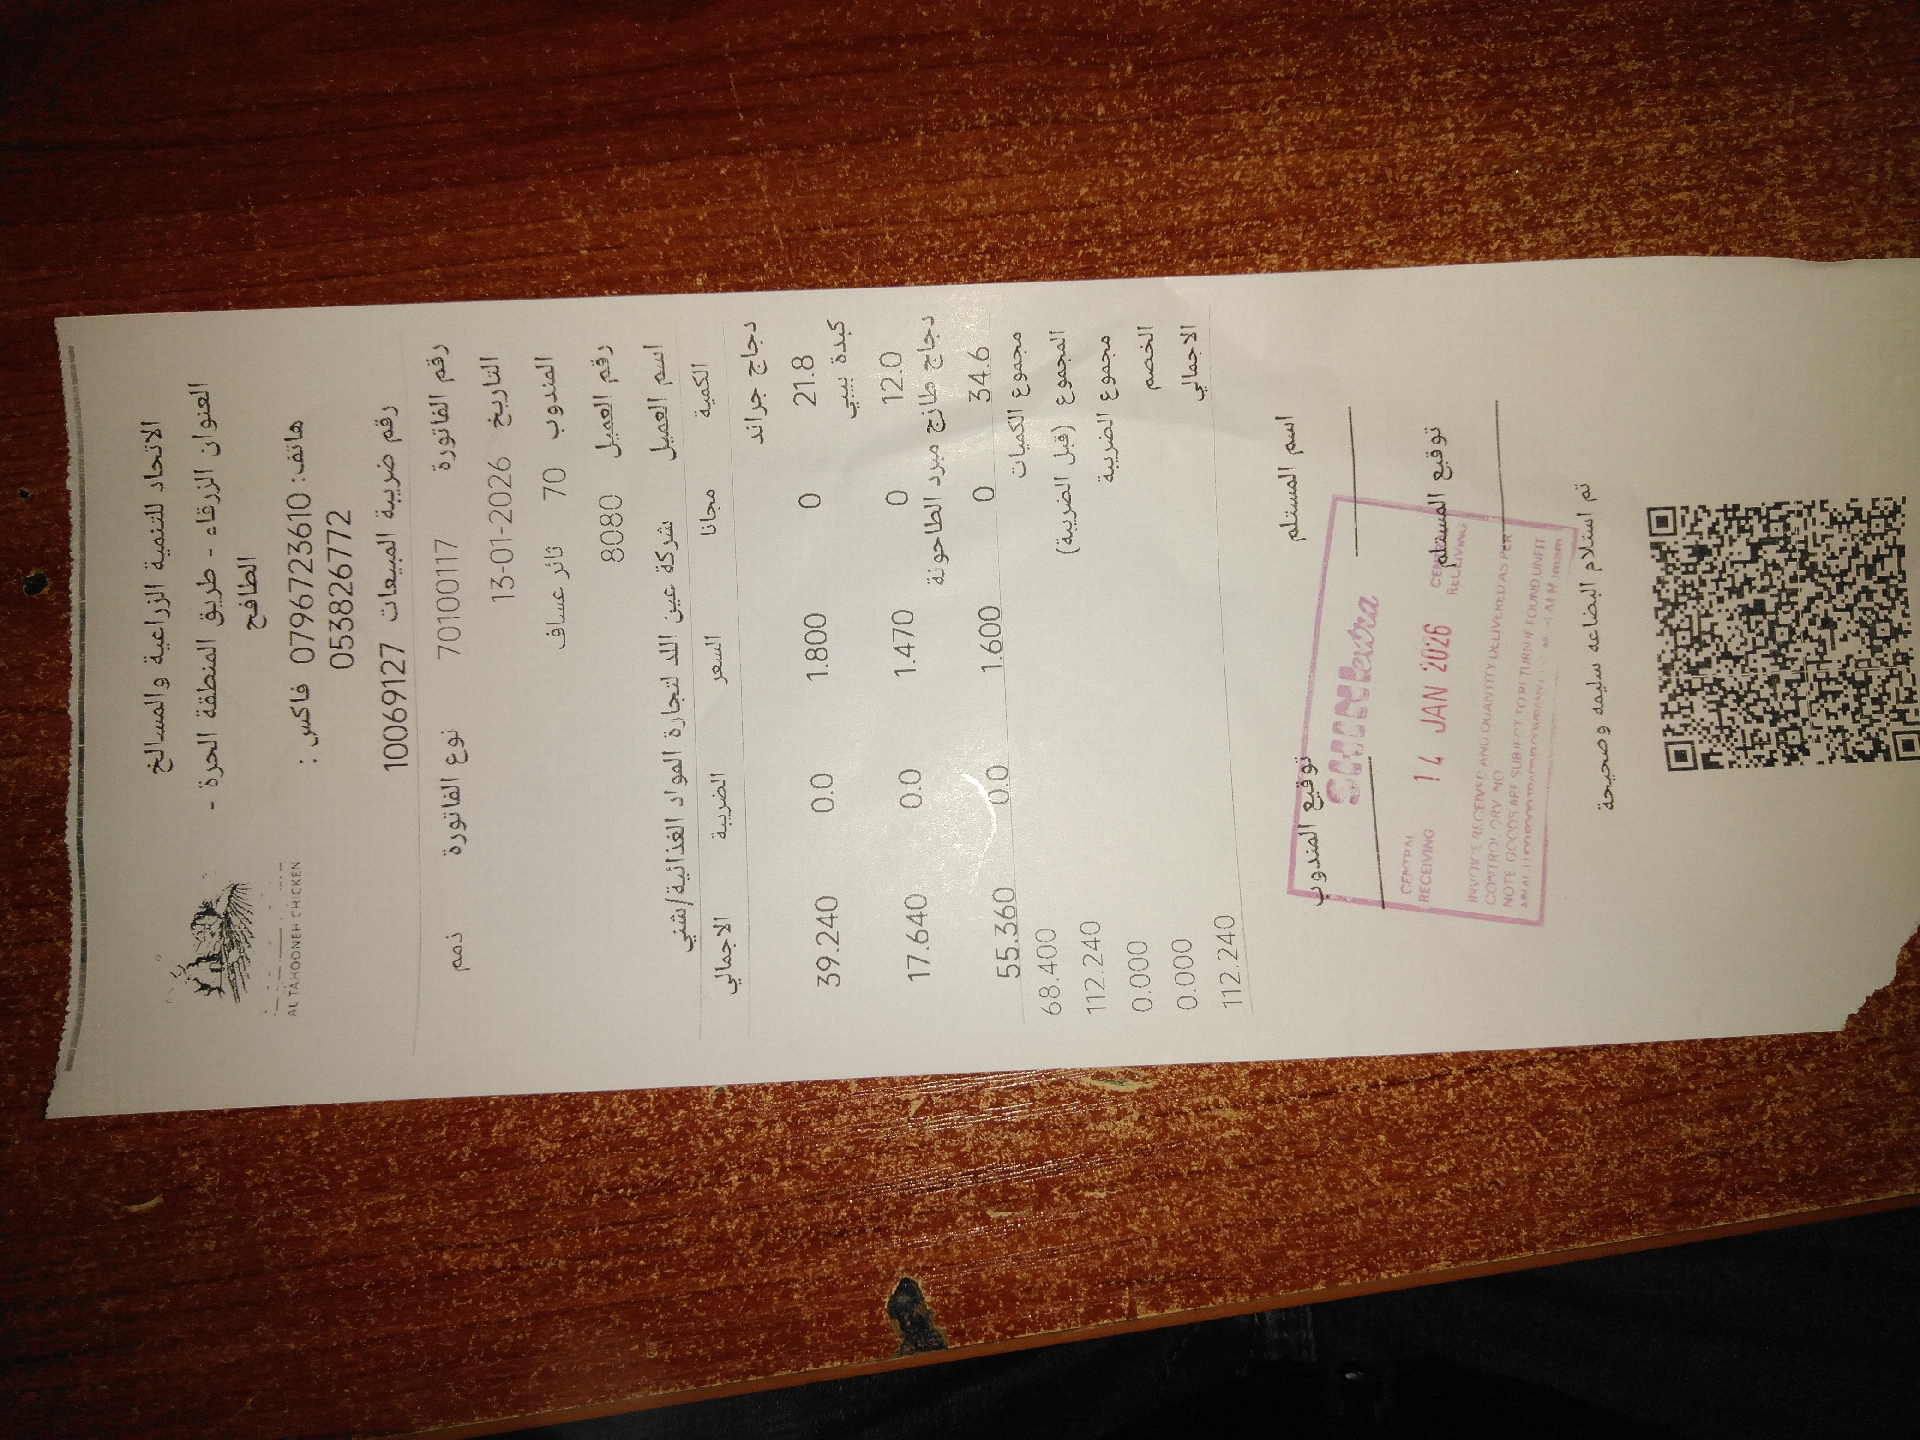 AL TAHOONEH CHICKEN
الاتحاد للتنمية الزراعية والمسالخ
العنوان الزرقاء - طريق المنطقة الحرة -
الطافح
هاتف: 0796723610 فاكس :
053826772
رقم ضريبة المبيعات 10069127
رقم الفاتورة 70100117 نوع الفاتورة ذمم
التاريخ 13-01-2026
المندوب 70 ثائر عساف
رقم العميل 8080
اسم العميل شركة عين اللد لتجارة المواد الغذائية/شني
الكمية مجانا السعر الضريبة الاجمالي
دجاج جراند
21.8 0 1.800 0.0 39.240
كبدة بيبي
12.0 0 1.470 0.0 17.640
دجاج طازج مبرد الطاحونة
34.6 0 1.600 0.0 55.360
مجموع الكميات 68.400
المجموع (قبل الضريبة) 112.240
مجموع الضريبة 0.000
الخصم 0.000
الاجمالي 112.240
اسم المستلم توقيع المندوب
توقيع المستلم
CENTRAL RECEIVING 14 JAN 2026 RECEIVING
INVOICE RECEIVED AND QUANTITY DELIVERED AS PER
CONTROL NO
NOTE GOODS ARE SUBJECT TO RETURN IF FOUND UNFIT
تم استلام البضاعه سليمه وصحيحة